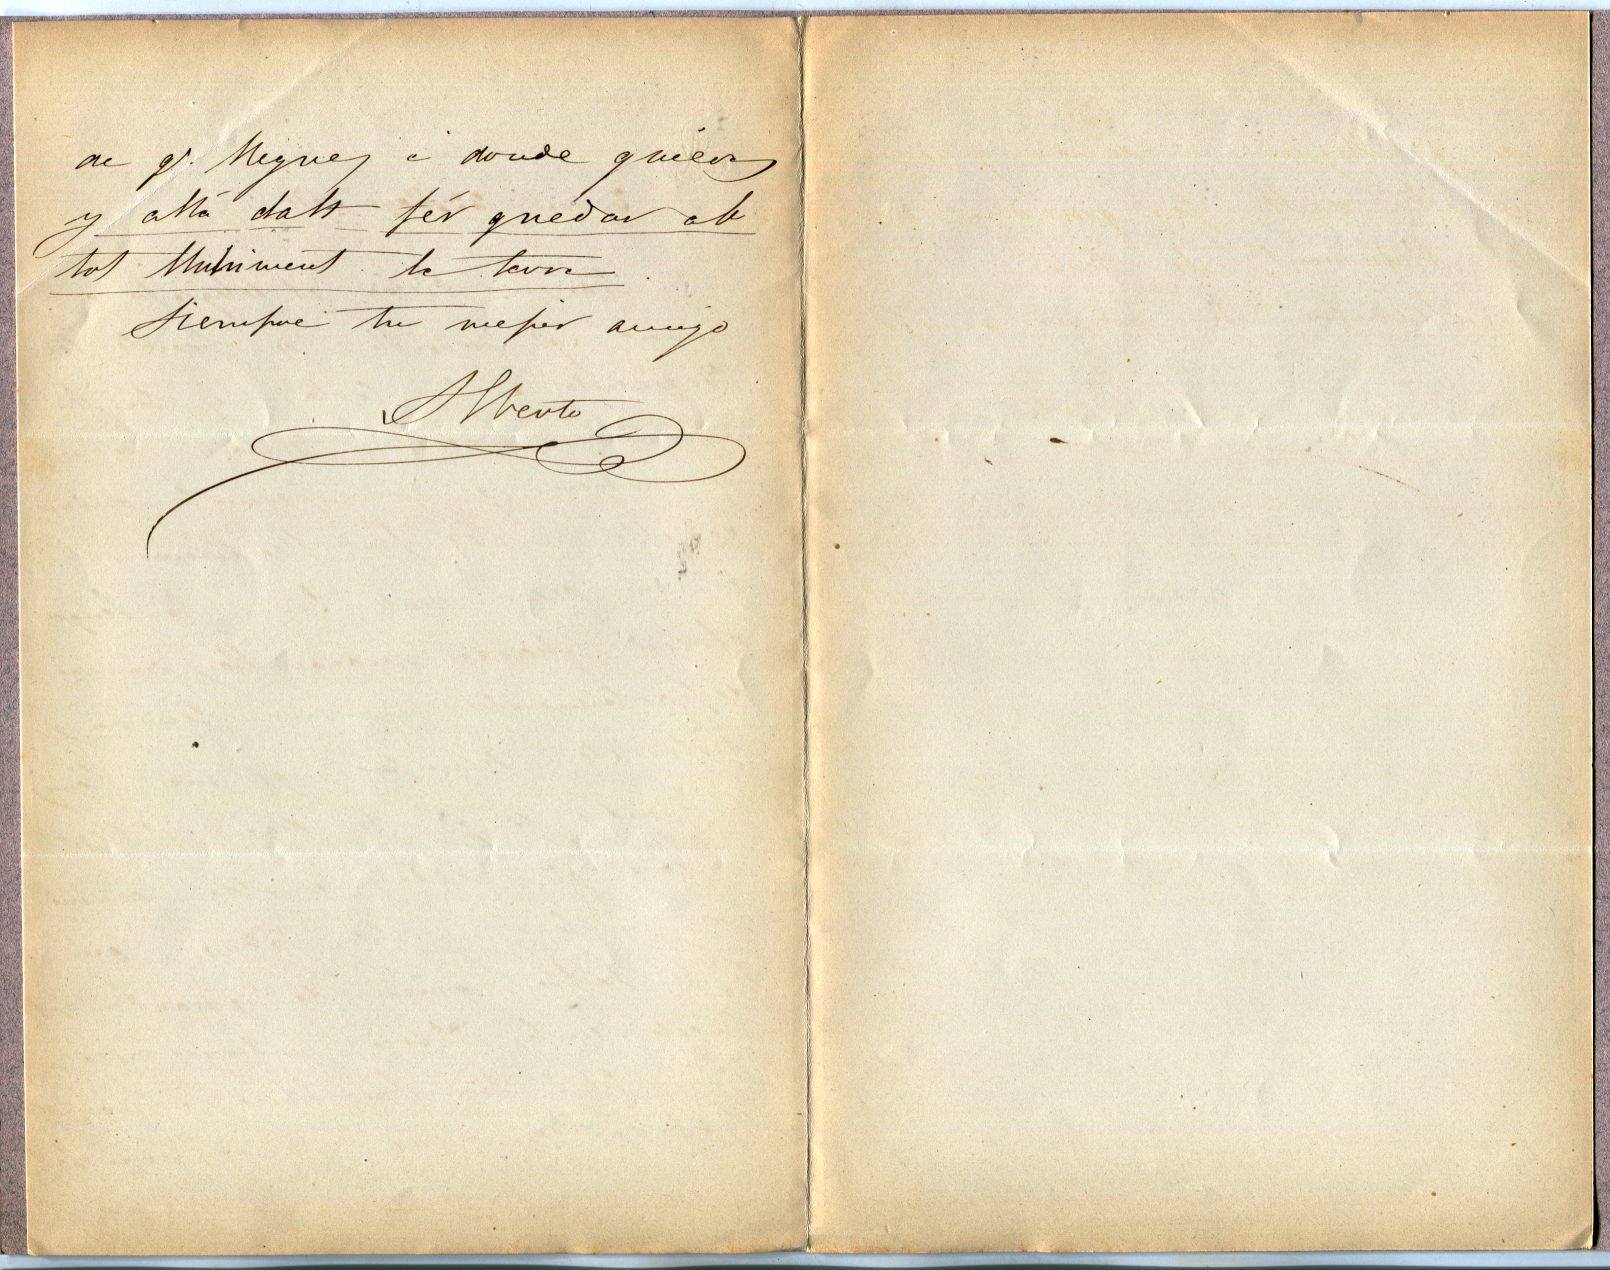 de gr. Miguel ó donde quieras
y allá dalt fér quedar ab
tot lluhiment la terra
Siempre tu mejor amigo
Alberto